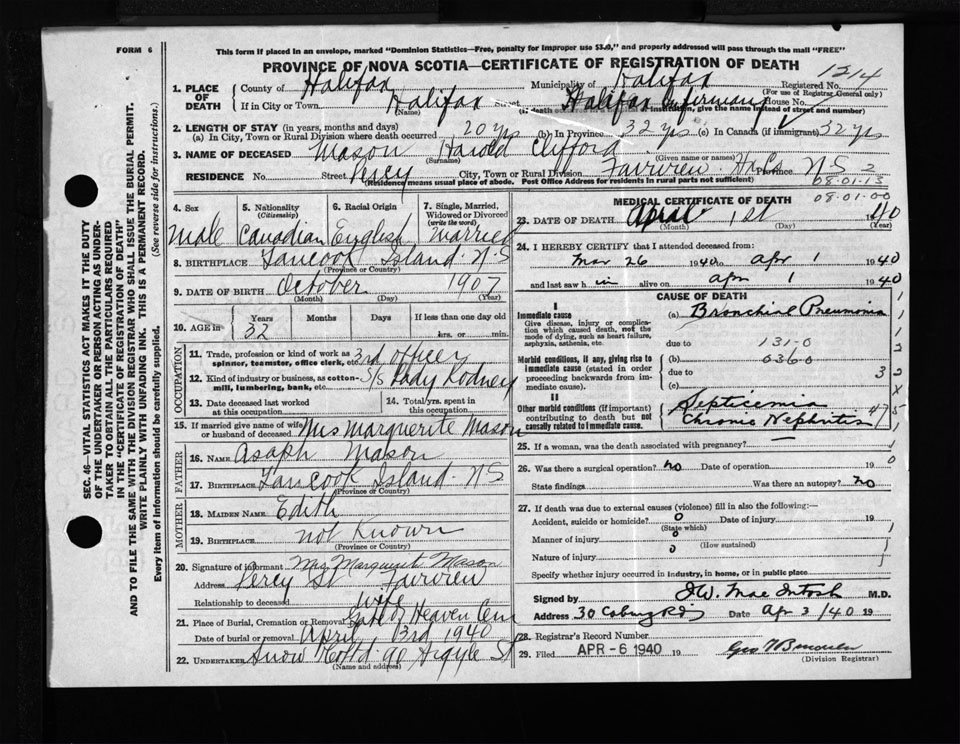 FORM 6
This form if placed in an envelope, marked "Dominion Statistics—Free, penalty for improper use $3.0," and properly addressed will pass through the mail "FREE"
PROVINCE OF NOVA SCOTIA—CERTIFICATE OF REGISTRATION OF DEATH
1214
1. PLACE OF DEATH
County of Halifax Municipality of Halifax Registered No.
(For use of Registrar General only)
If in City or Town Halifax Street Halifax Infirmary House No.
(Name) institution, give the name instead of street and number)
2. LENGTH OF STAY (in years, months and days)
(a) In City, Town or Rural Division where death occurred 20 yrs (b) In Province 32 yrs (c) In Canada (if immigrant) 32 yrs
3. NAME OF DECEASED Mason Harold Clifford
(Surname) (Given name or names)
RESIDENCE No. Street Percy City, Town or Rural Division Fairview Province N S 2
(Residence means usual place of abode. Post Office Address for residents in rural parts not sufficient)
08-01-13
08-01-00
4. Sex
Male
5. Nationality (Citizenship)
Canadian
6. Racial Origin
English
7. Single, Married, Widowed or Divorced (write the word)
Married
8. BIRTHPLACE Tancook Island. N.S
(Province or Country)
9. DATE OF BIRTH October 1907
(Month) (Day) (Year)
10. AGE in
Years Months Days If less than one day old
32 hrs. or min.
OCCUPATION
11. Trade, profession or kind of work as spinner, teamster, office clerk, etc. 3rd officer
12. Kind of industry or business, as cotton-mill, lumbering, bank, etc. S/s Lady Rodney
13. Date deceased last worked at this occupation
14. Total/yrs. spent in this occupation
15. If married give name of wife or husband of deceased Mrs Marguerite Mason
FATHER
16. NAME Asaph Mason
17. BIRTHPLACE Tancook Island. N S
(Province or Country)
MOTHER
18. MAIDEN NAME Edith
19. BIRTHPLACE not Known
(Province or Country)
20. Signature of informant Mrs Marguerite Mason
Address Percy St Fairview
Relationship to deceased wife
21. Place of Burial, Cremation or Removal Gate of Heaven Cem
Date of burial or removal April 3rd 1940
22. UNDERTAKER Snow 90 Argyle St
(Name and address)
MEDICAL CERTIFICATE OF DEATH
23. DATE OF DEATH April 1st 1940
(Month) (Day) (Year)
24. I HEREBY CERTIFY that I attended deceased from:
Mar 26 1940 to Apr 1 1940
and last saw h im alive on Apr 1 1940
CAUSE OF DEATH
I
Immediate cause
Give disease, injury or complication which caused death, not the mode of dying, such as heart failure, asphyxia, asthenia, etc.
(a) Bronchial Pneumonia
due to 131-0
Morbid conditions, if any, giving rise to immediate cause (stated in order proceeding backwards from immediate cause).
(b) 0360
due to 3
(c)
II
Other morbid conditions (if important) contributing to death but not causally related to immediate cause.
Septicemia
Chronic Nephritis
25. If a woman, was the death associated with pregnancy?
26. Was there a surgical operation? no Date of operation 19
State findings Was there an autopsy? no
27. If death was due to external causes (violence) fill in also the following:—
Accident, suicide or homicide? 0 Date of injury 19
(State which)
Manner of injury
(How sustained)
Nature of injury
Specify whether injury occurred in industry, in home, or in public place
Signed by MacIntosh M.D.
Address 30 Coburg Rd Date Apr 3/40 19
28. Registrar's Record Number
29. Filed APR - 6 1940 19
(Division Registrar)
SEC. 46—VITAL STATISTICS ACT MAKES IT THE DUTY
OF THE UNDERTAKER OR PERSON ACTING AS UNDER-
TAKER TO OBTAIN ALL THE PARTICULARS REQUIRED
IN THE "CERTIFICATE OF REGISTRATION OF DEATH"
AND TO FILE THE SAME WITH THE DIVISION REGISTRAR WHO SHALL ISSUE THE BURIAL PERMIT.
WRITE PLAINLY WITH UNFADING INK. THIS IS A PERMANENT RECORD.
Every item of Information should be carefully supplied. (See reverse side for instructions.)